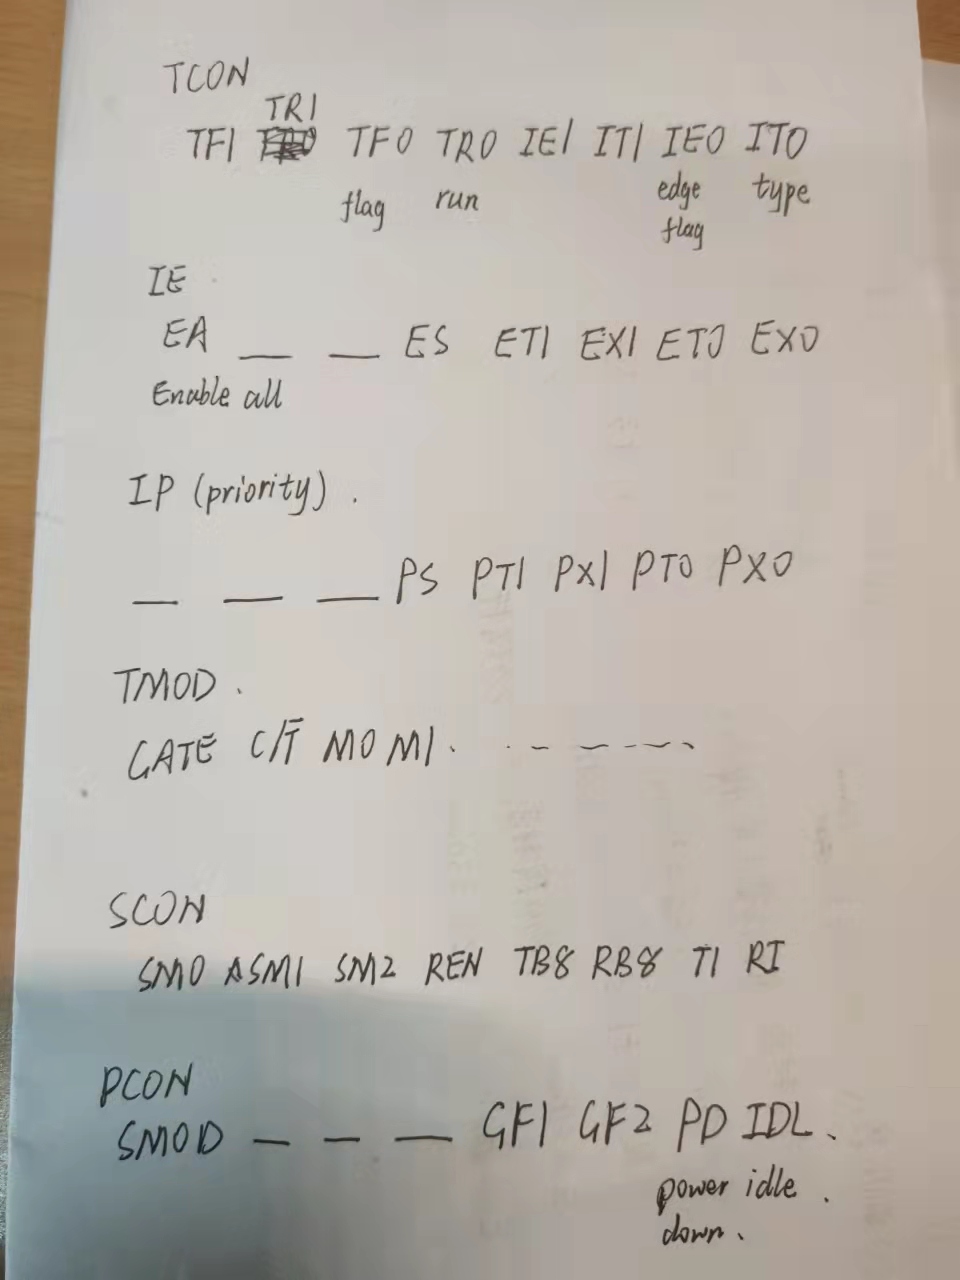 TCON
TR1
TF1 TF0 TR0 IE1 IT1 IE0 IT0
flag run edge type
flag
IE
EA __ __ ES ET1 EX1 ET0 EX0
Enable all
IP (priority).
__ __ __ PS PT1 PX1 PT0 PX0
TMOD.
GATE C/T̅ M0 M1.
SCON
SM0 ASM1 SM2 REN TB8 RB8 TI RI
PCON
SMOD __ __ __ GF1 GF2 PD IDL.
power idle.
down.